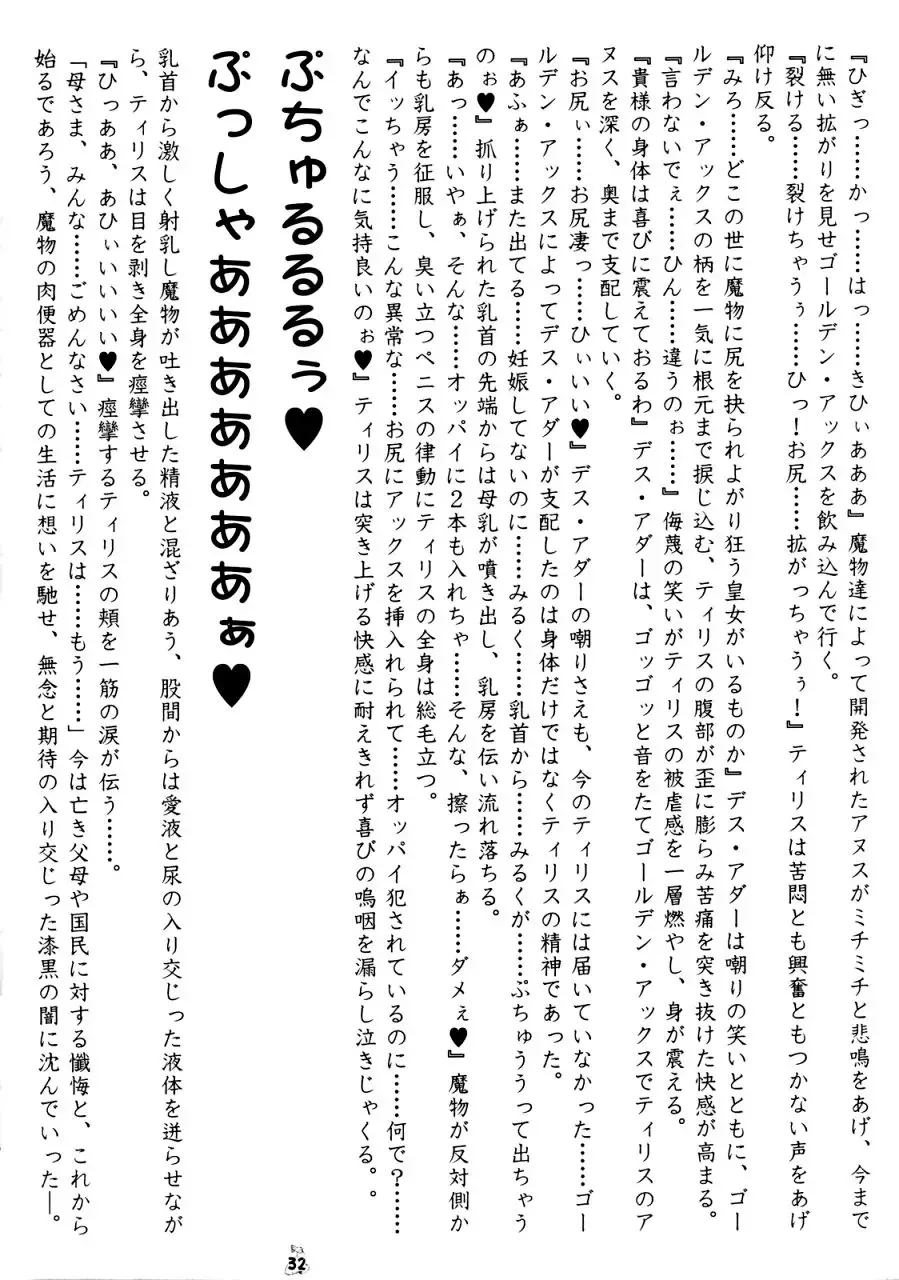 『ひぎっ……かっ……はっ……きひぃあああ』魔物達によって開発されたアヌスがミチミチと悲鳴をあげ、今まで
に無い拡がりを見せゴールデン・アックスを飲み込んで行く。
『裂ける……裂けちゃうぅ……ひっ！お尻……拡がっちゃうぅ！』ティリスは苦悶とも興奮ともつかない声をあげ
仰け反る。
『みろ……どこの世に魔物に尻を抉られよがり狂う皇女がいるものか』デス・アダーは嘲りの笑いとともに、ゴー
ルデン・アックスの柄を一気に根元まで捩じ込む、ティリスの腹部が歪に膨らみ苦痛を突き抜けた快感が高まる。
『言わないでぇ……ひん……違うのぉ……』侮蔑の笑いがティリスの被虐感を一層燃やし、身が震える。
『貴様の身体は喜びに震えておるわ』デス・アダーは、ゴッゴッと音をたてゴールデン・アックスでティリスのア
ヌスを深く、奥まで支配していく。
『お尻ぃ……お尻凄っ……ひぃいい♥』デス・アダーの嘲りさえも、今のティリスには届いていなかった……ゴー
ルデン・アックスによってデス・アダーが支配したのは身体だけではなくティリスの精神であった。
『あふぁ……また出てる……妊娠してないのに……みるく……乳首から……みるくが……ぷちゅううって出ちゃう
のぉ♥』抓り上げられた乳首の先端からは母乳が噴き出し、乳房を伝い流れ落ちる。
『あっ……いやぁ、そんな……オッパイに２本も入れちゃ……そんな、擦ったらぁ……ダメぇ♥』魔物が反対側か
らも乳房を征服し、臭い立つペニスの律動にティリスの全身は総毛立つ。
『イッちゃう……こんな異常な……お尻にアックスを挿入れられて……オッパイ犯されているのに……何で？……
なんでこんなに気持良いのぉ♥』ティリスは突き上げる快感に耐えきれず喜びの嗚咽を漏らし泣きじゃくる。
ぷちゅるるるぅ♥
ぷっしゃああああああぁ♥
乳首から激しく射乳し魔物が吐き出した精液と混ざりあう、股間からは愛液と尿の入り交じった液体を迸らせなが
ら、ティリスは目を剥き全身を痙攣させる。
『ひっああ、あひぃいいいい♥』痙攣するティリスの頬を一筋の涙が伝う……。
「母さま、みんな……ごめんなさい……ティリスは……もう……」今は亡き父母や国民に対する懺悔と、これから
始るであろう、魔物の肉便器としての生活に想いを馳せ、無念と期待の入り交じった漆黒の闇に沈んでいった―。
32